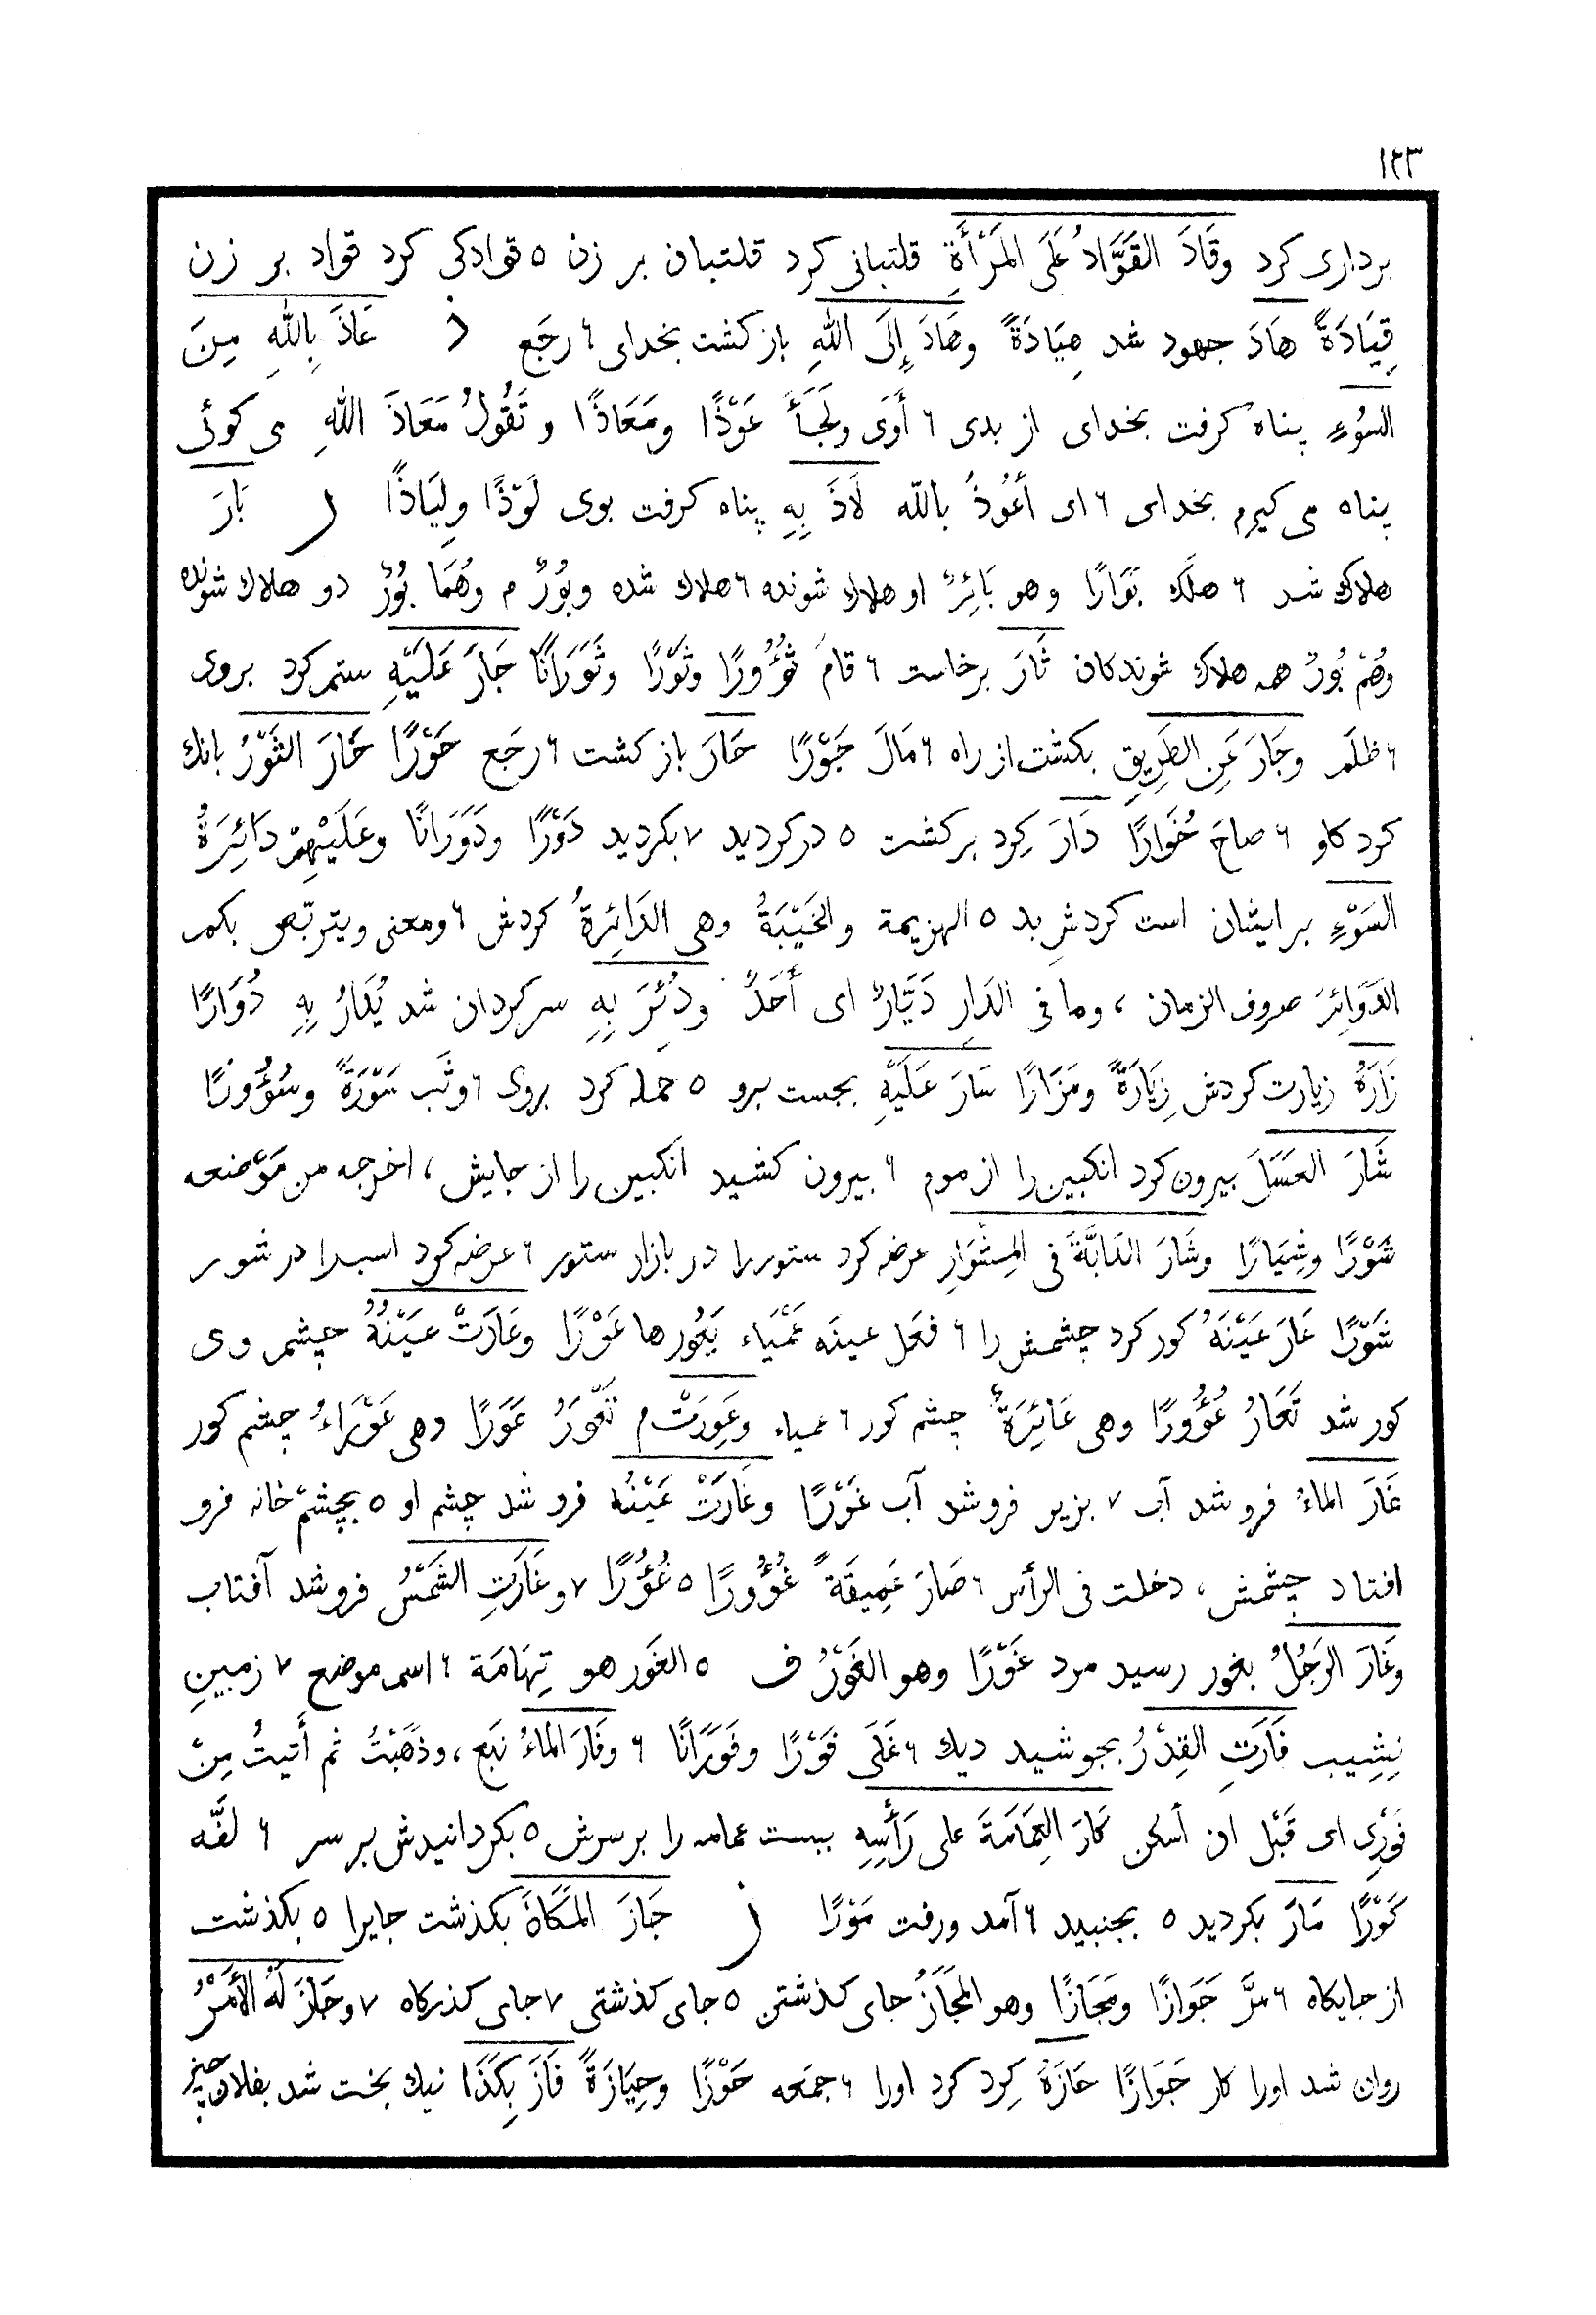 ١٢٣
برداری کرد وقَادَ القَوَّادُ عَلَى المَرْأَةِ قلتبانی کرد قلتبان بر زن ٥ قوادکی کرد قواد بر زن
قِيَادَةً هَادَ جهود شد هِيَادَةً وهَادَ إِلَى اللهِ باز کشت بخدای ٦ رجَع ذ عَاذَ بِاللهِ مِنَ
السُوْءِ پناه کرفت بخدای از بدی ٦ أَوَى ولَجَأَ عَوْذًا ومَعَاذًا و تَقُولُ مَعَاذَ اللهِ می کوئی
پناه می کیرم بخدای ٦ ای أَعُوذُ بالله لَاذَ بِهِ پناه کرفت بوی لَوْذًا ولِيَاذًا ر بَارَ
هلاک شد ٦ هلَك بَوَارًا وهو بَائِرٌ او هلاک شونده ٦ هلاک شده وبُورٌ م وهُمَا بُورٌ دو هلاک شونده
وهُمْ بُورٌ همه هلاک شوندکان ثَارَ برخاست ٦ قامَ ثُؤُورًا وثَوْرًا وثَوَرَانًا جَارَ عَلَيْهِ ستم کرد بروی
٦ ظلَم وجَارَ عَنِ الطَرِيقِ بکشت از راه ٦ مَالَ جَوْرًا حَارَ باز کشت ٦ رجَع حَوْرًا خَارَ الثَوْرُ بانك
کرد کاو ٦ صاحَ خُوَارًا دَارَ کِرد برکشت ٥ در کردید ٧ بکردید دَوْرًا ودَوَرَانًا وعَلَيْهِمْ دَائِرَةُ
السَوْءِ بر ایشان است کردشِ بد ٥ الهزيمة والخَيْبَةُ وهی الدَائِرةُ کردش ٦ ومعنی ويتربّص بكم
الدَوَائِرَ صروف الزمان ، وما فی الدَارِ دَيَّارٌ ای أَحَدٌ ودُئِرَ بِهِ سرکردان شد يُدَارُ بِهِ دُوَارًا
زَارَهُ زیارت کردش زِيَارَةً ومَزَارًا سَارَ عَلَيْهِ بجست برو ٥ حمله کرد بروی ٦ وثَب سَوْرَةً وسُؤُورًا
شَارَ العَسَلَ بیرون کرد انکبین را از موم ٦ بیرون کشید انکبین را از جایش ، اخرجه من مَوْضعه
شَوْرًا وشِيَارًا وشَارَ الدَابَّةَ فی المِشْوَارِ عرضه کرد ستور را در بازار ستور ٦ عرضه کرد اسبرا در شور
شَوْرًا عَارَ عَيْنَهُ کور کرد چشمش را ٦ فعَل عينَه عَمْيَاء يَعُورها عَوْرًا وعَارَتْ عَيْنُهُ چشم وی
کور شد تَعَارُ عُؤُورًا وهی عَائِرَةٌ چشم کور ٦ عمیاء وعَوِرَتْ م تَعْوَرُ عَوَرًا وهی عَوْرَاءُ چشم کور
غَارَ الماءُ فرو شد آب ٧ بزیر فروشد آب غَوْرًا وغَارَتْ عَيْنُه فرو شد چشم او ٥ بچشم خانه فرو
افتاد چشمش ، دخلت فی الرأس ٦ صَارَ عَمِيقَةً غُؤُورًا ٥ غُؤُرًا ٧ وغَارَتِ الشَمْسُ فروشد آفتاب
وغَارَ الرَجُلُ بغور رسید مرد غَوْرًا وهو الغَوْرُ ف ٥ الغَور هو تِهَامَة ٦ اسم موضع ٧ زمینِ
نِشِیب فَارَتِ القِدْرُ بجوشید دیك ٦ غَلَى فَوْرًا وفَوَرَانًا ٦ وفَارَ المَاءُ نبَع ، وذَهَبْتُ ثم أَتيتُ مِنْ
فَوْرِی ای قَبْل ان أسكن كَارَ العِمَامَةَ على رَأْسِهِ ببست عمامه را بر سرش ٥ بکردانیدش بر سر ٦ لفَّه
كَوْرًا مَارَ بکردید ٥ بجنبید ٦ آمد ورفت مَوْرًا ز جَازَ المَكَانَ بکذشت جایرا ٥ بکذشت
از جایکاه ٦ مَرَّ جَوَازًا ومَجَازًا وهو المَجَازُ جای کذشتن ٥ جای کذشتی ٧ جای کذرکاه ٧ وجَازَ لَهُ الأَمْرُ
روان شد اورا کار جَوَازًا حَازَهُ کِرد کرد اورا ٦ جمَعه حَوْزًا وحِيَازَةً فَازَ بِكَذَا نیك بخت شد بفلان چیز